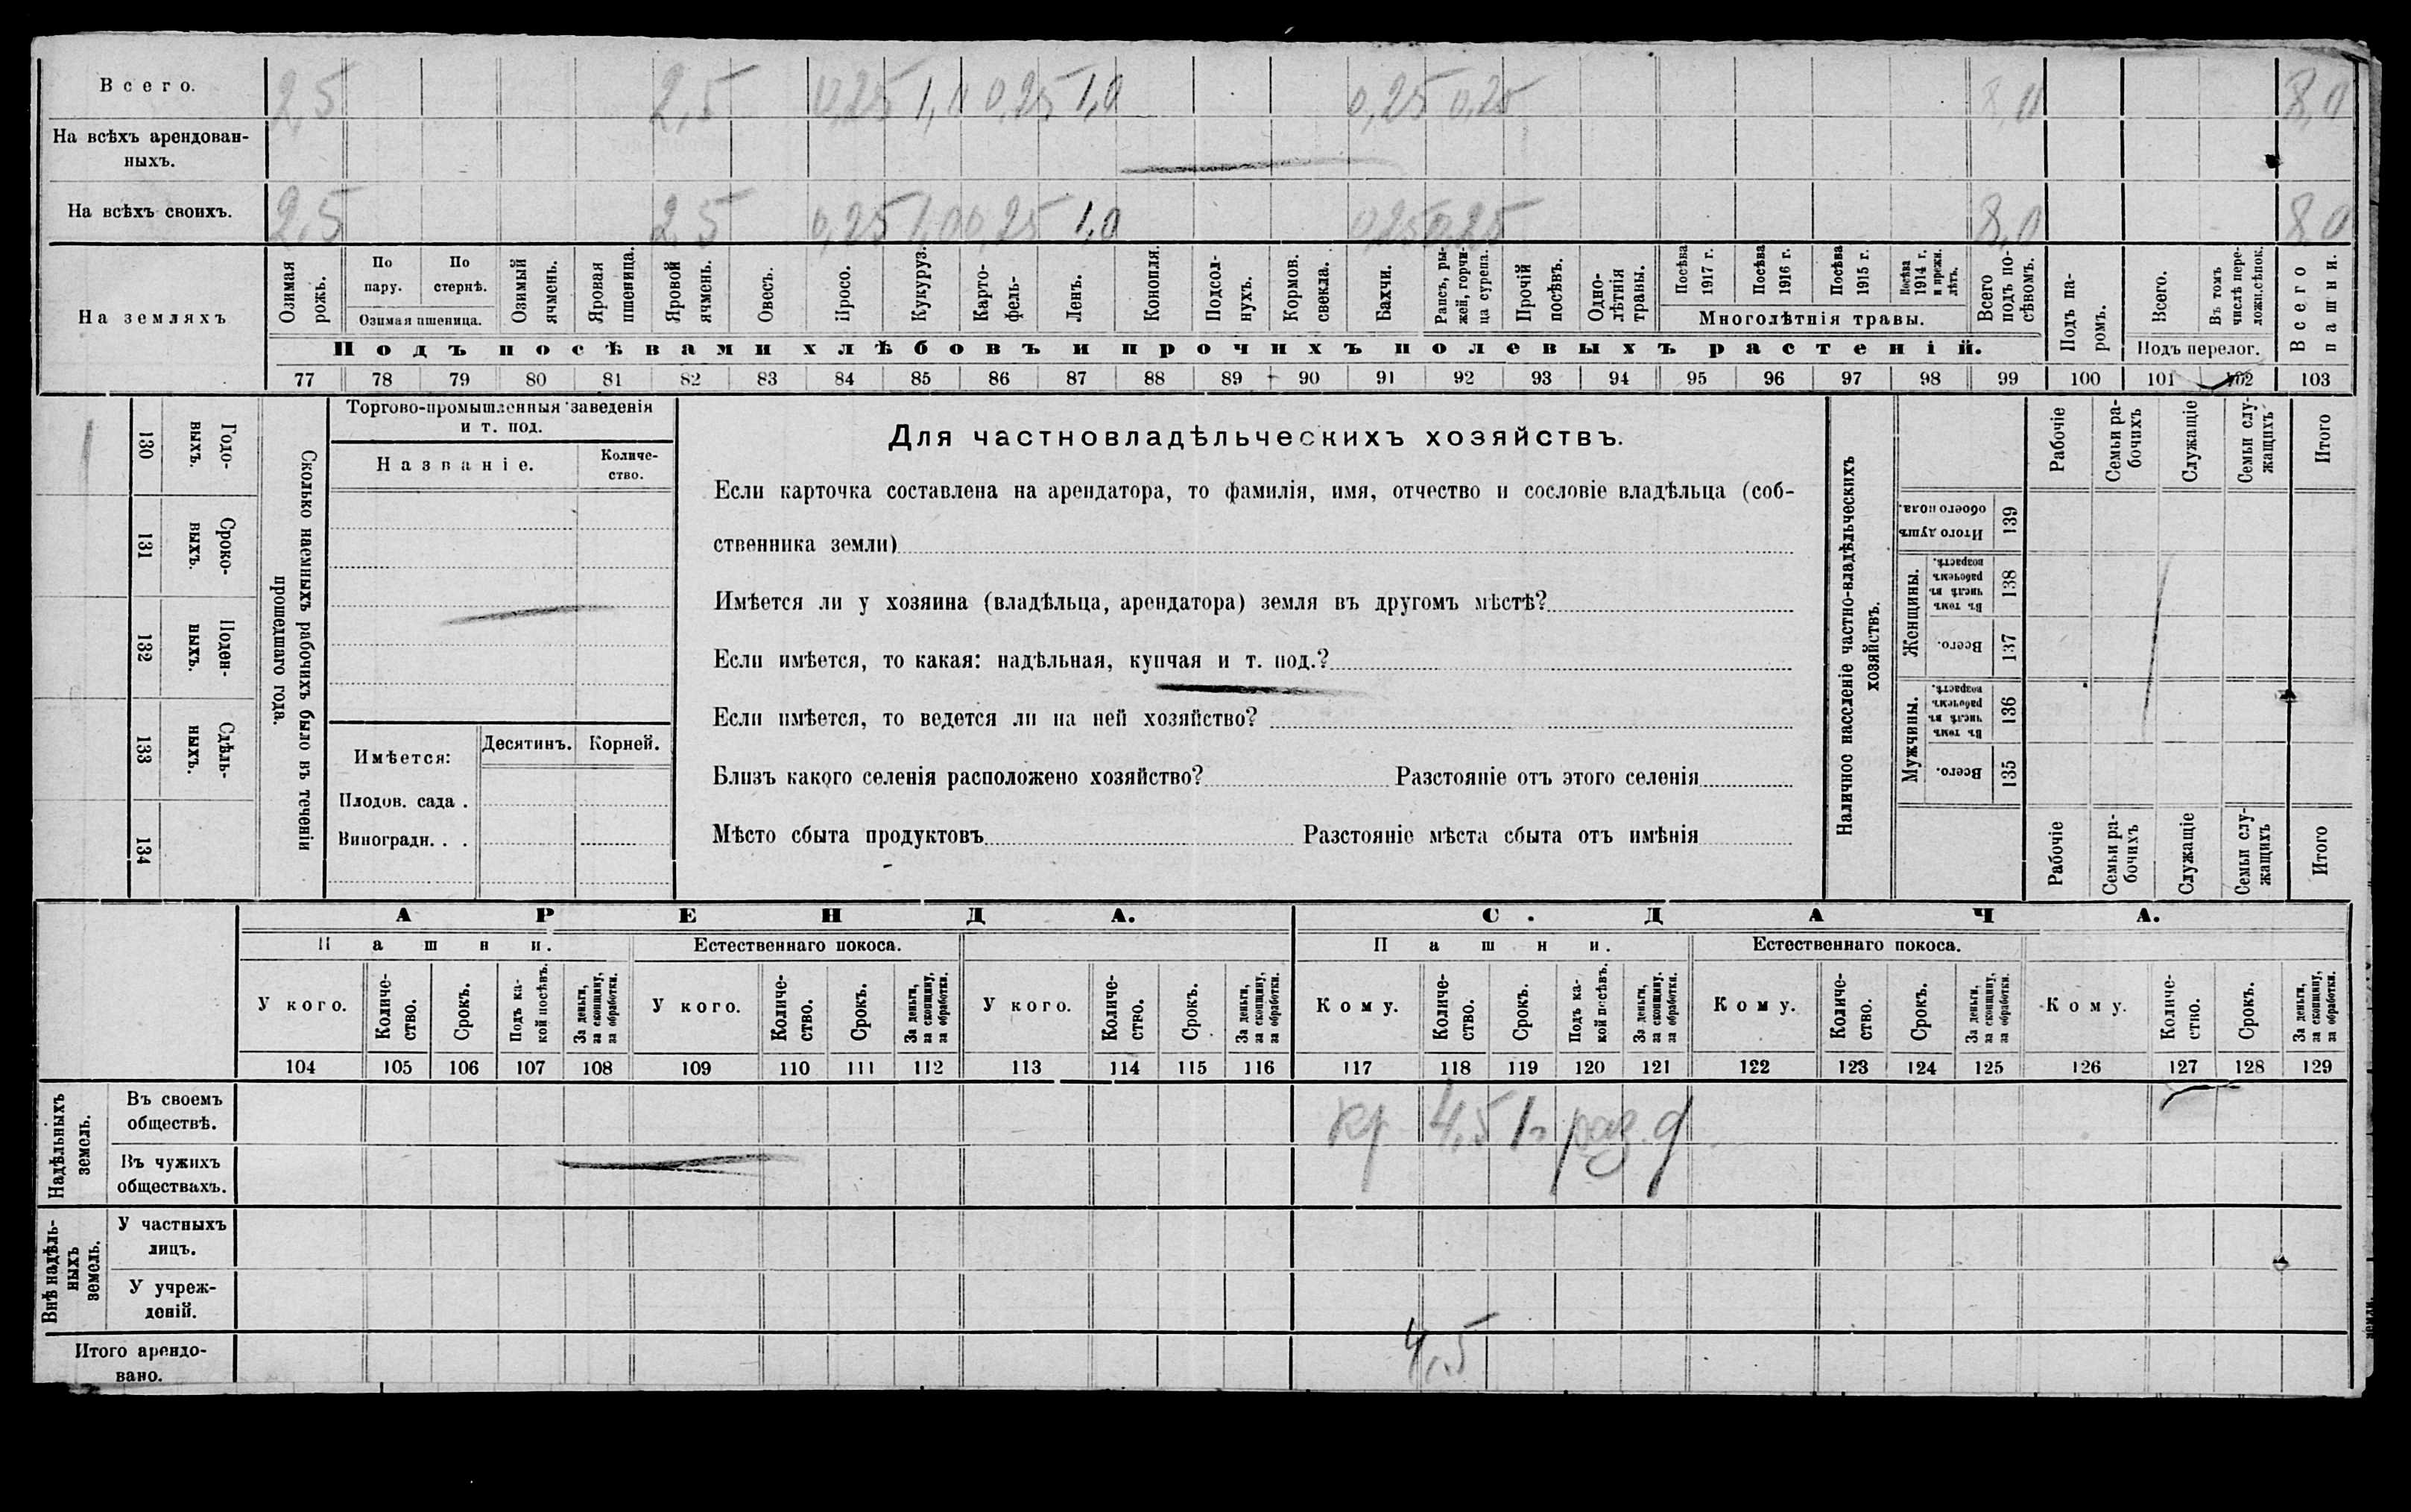 Всего. 2,5 2,5 0,25 1,0 0,25 1,0 0,25 0,25 8,0 8,0
На всѣхъ арендован-
ныхъ.
На всѣхъ своихъ. 2,5 2,5 0,25 1,0 0,25 1,0 0,25 0,25 8,0 8,0
На земляхъ
Озимая рожь.
По пару.
По стернѣ.
Озимая пшеница.
Озимый ячмень.
Яровая пшеница.
Яровой ячмень.
Овесъ.
Просо.
Кукуруз.
Карто-
фель.
Ленъ.
Конопля.
Подсол-
нухъ.
Кормов.
свекла.
Бахчи.
Рапсъ, ры-
жей, горчи-
ца сурепа.
Прочій
посѣвъ.
Одно-
лѣтнія
травы.
Посѣва 1917 г.
Посѣва 1916 г.
Посѣва 1915 г.
Посѣва 1914 г. и прежн. лѣтъ.
Многолѣтнія травы.
Всего подъ по-
сѣвомъ.
Подъ па-
ромъ.
Всего.
Въ томъ числѣ пере-
ложн.сѣнок.
Подъ перелог.
Всего пашни.
Подъ посѣвами хлѣбовъ и прочихъ полевыхъ растеній.
77 78 79 80 81 82 83 84 85 86 87 88 89 90 91 92 93 94 95 96 97 98 99 100 101 102 103
130 Годо-
выхъ.
131 Сроко-
выхъ.
132 Поден-
ныхъ.
133 Сдѣль-
ныхъ.
134
Сколько наемныхъ рабочихъ было въ теченіи
прошедшаго года.
Торгово-промышленныя заведенія
и т. под.
Названіе.
Количе-
ство.
Имѣется:
Десятинъ. Корней.
Плодов. сада .
Виноградн. . .
Для частновладѣльческихъ хозяйствъ.
Если карточка составлена на арендатора, то фамилія, имя, отчество и сословіе владѣльца (соб-
ственника земли)
Имѣется ли у хозяина (владѣльца, арендатора) земля въ другомъ мѣстѣ?
Если имѣется, то какая: надѣльная, купчая и т. под.?
Если имѣется, то ведется ли на ней хозяйство?
Близъ какого селенія расположено хозяйство? Разстояніе отъ этого селенія
Мѣсто сбыта продуктовъ Разстояніе мѣста сбыта отъ имѣнія
Наличное населеніе частно-владѣльческихъ
хозяйствъ.
Рабочіе
Семьи ра-
бочихъ
Служащіе
Семьи слу-
жащихъ
Итого
Итого душъ
обоего пола.
139
Женщины.
Въ томъ числѣ въ рабочемъ возрастѣ.
138
Всего.
137
Мужчины.
Въ томъ числѣ въ рабочемъ возрастѣ.
136
Всего.
135
Рабочіе
Семьи ра-
бочихъ
Служащіе
Семьи слу-
жащихъ
Итого
АРЕНДА. СДАЧА.
Пашни. Естественнаго покоса. Пашни. Естественнаго покоса.
У кого.
Количе-
ство.
Срокъ.
Подъ ка-
кой посѣвъ.
За деньги,
за скопщину,
за обработки.
У кого.
Количе-
ство.
Срокъ.
За деньги,
за скопщину,
за обработки.
У кого.
Количе-
ство.
Срокъ.
За деньги,
за скопщину,
за обработки.
Кому.
Количе-
ство.
Срокъ.
Подъ ка-
кой посѣвъ.
За деньги,
за скопщину,
за обработки.
Кому.
Количе-
ство.
Срокъ.
За деньги,
за скопщину,
за обработки.
Кому.
Количе-
ство.
Срокъ.
За деньги,
за скопщину,
за обработки.
104 105 106 107 108 109 110 111 112 113 114 115 116 117 118 119 120 121 122 123 124 125 126 127 128 129
Надѣльныхъ
земель.
Въ своемъ
обществѣ.
кр 4,5 1г раз. д
Въ чужихъ
обществахъ.
Внѣ надѣль-
ныхъ
земель.
У частныхъ
лицъ.
У учреж-
деній.
Итого арендо-
вано.
4,5